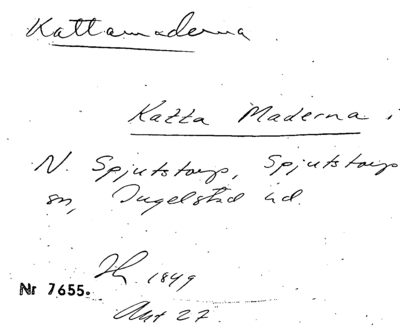 Kattamaderna
Katta Maderna i
N. Spjutstorp, Spjutstorps
sn, Ingelstad hd.
1849
Nr 7655.
Akt 27